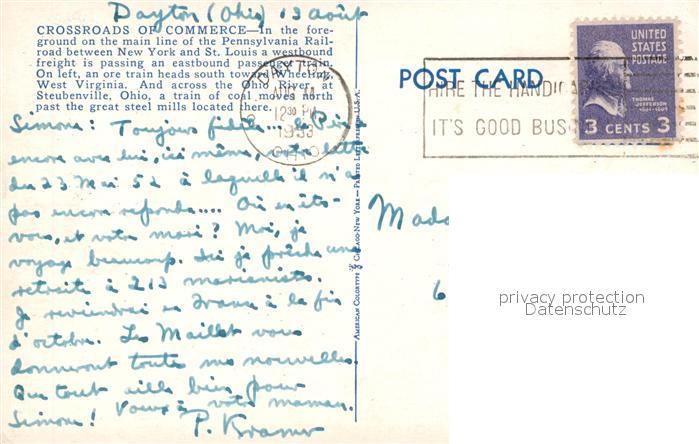 Dayton (Ohio) 13 août
CROSSROADS OF COMMERCE—In the fore-
ground on the main line of the Pennsylvania Rail-
road between New York and St. Louis a westbound
freight is passing an eastbound passenger train.
On left, an ore train heads south toward Wheeling,
West Virginia. And across the Ohio River, at
Steubenville, Ohio, a train of coal moves north
past the great steel mills located there.
Simone: Toujours fidèle... le Père
encore avec lui, ici même, votre lettre
du 23 Mai 52 à laquelle il n'a
pas encore répondu.... Où en êtes-
vous, et votre mari? Moi, je
voyage beaucoup. Ici je prêche une
retraite à 213 marianistes.
Je reviendrai en France à la fin
d'octobre. Les Maillet vous
donneront toute mes nouvelles.
Que tout aille bien pour
Simone! Vœux à votre maman.
P. Kramer
DAYTON
AUG 14
12 30 PM
1953
OHIO
AMERICAN COLORTYPE CHICAGO-NEW YORK — PRINTED U.S.A.
POST CARD
HIRE THE HANDICAP
IT'S GOOD BUS
UNITED
STATES
POSTAGE
THOMAS
JEFFERSON
3 CENTS 3
Mada
6
privacy protection
Datenschutz